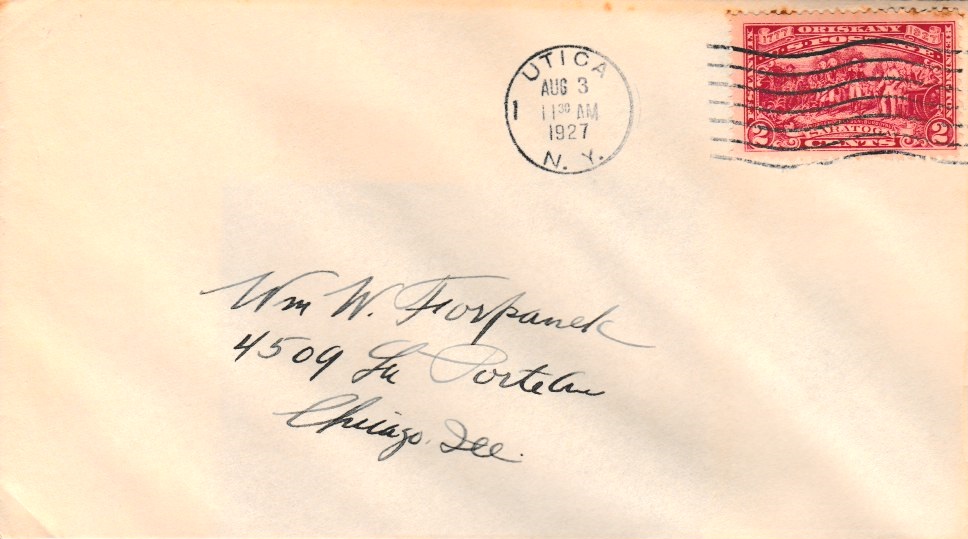 UTICA
AUG 3
11 30 AM
1927
N. Y.
1
1777 ORISKANY 1927
U.S. POSTAGE
SARATOGA
2 CENTS 2
Wm W.
4509 La Porte Av
Chicago. Ill.